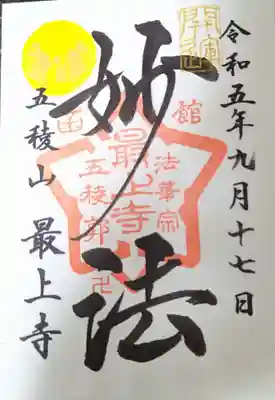 令和五年九月十七日
開運
妙法
函館
法華宗
最上寺
五稜郭
五稜山 最上寺